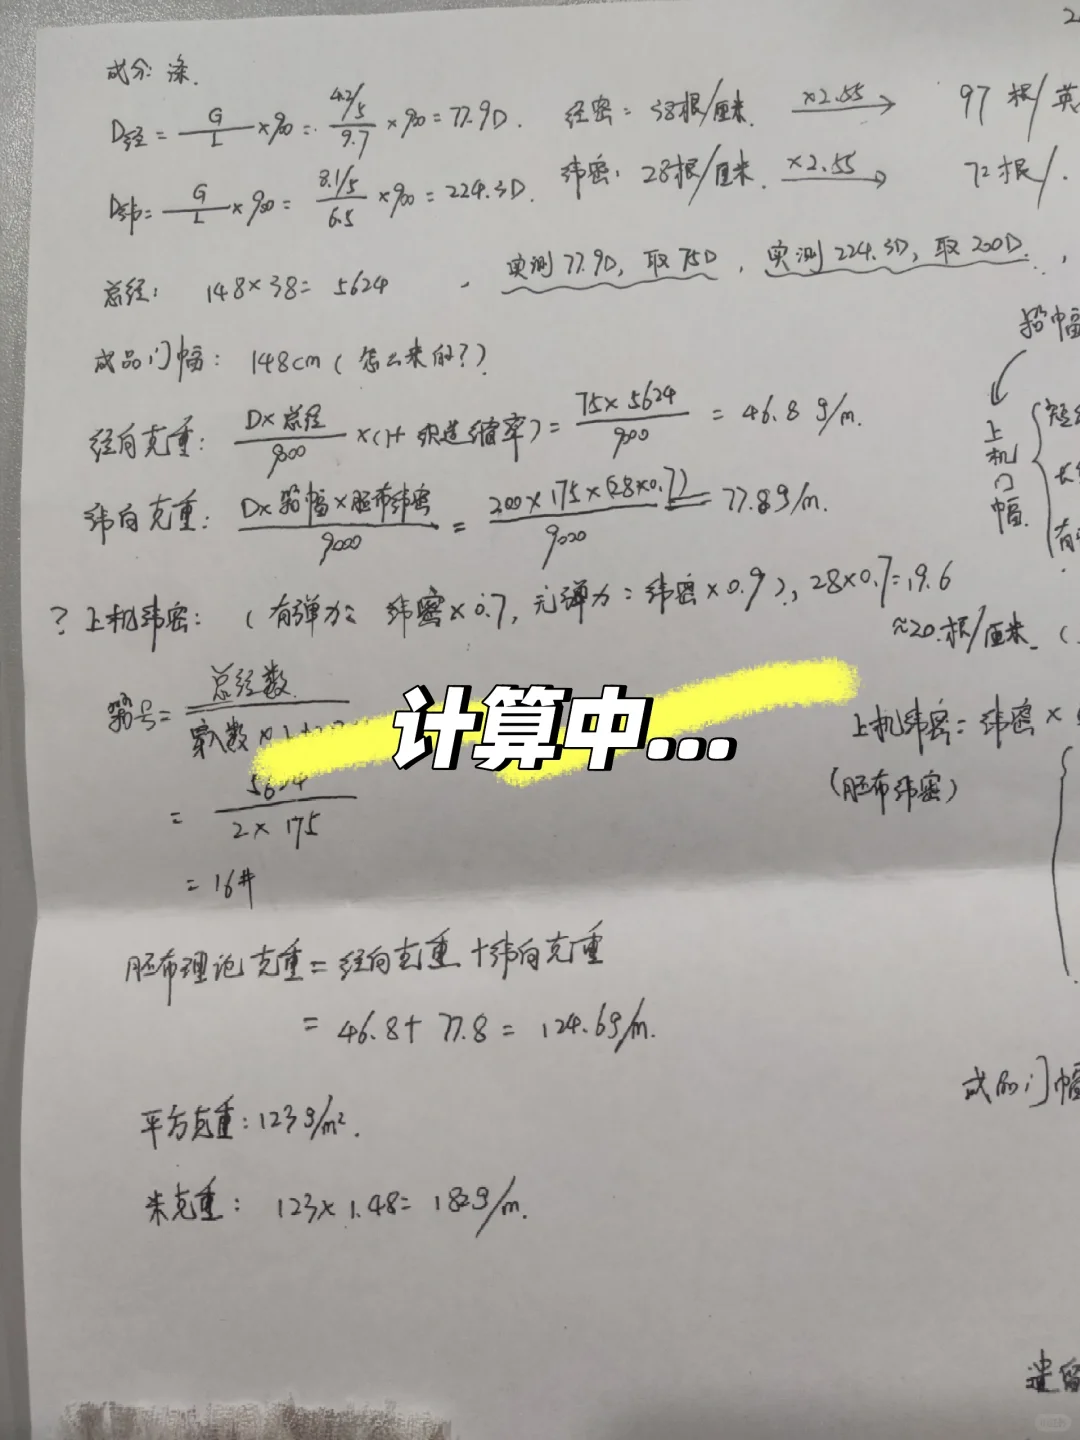 成分: 涤.
D经 = G/L ×900 = 4.2/5 / 9.7 ×900 = 77.9D. 经密: 38根/厘米 ×2.55→ 97根/英
D纬 = G/L ×900 = 8.1/5 / 6.5 ×900 = 224.3D. 纬密: 28根/厘米. ×2.55→ 72根/.
实测77.9D, 取75D, 实测224.3D, 取200D.
总经: 148×38= 5624
成品门幅: 148cm (怎么来的?)
经向克重: D×总经/9000 ×(1+织造缩率) = 75×5624/9000 = 46.8g/m.
纬向克重: D×筘幅×胚布纬密/9000 = 200×175×(28×0.7)/9000 = 77.8g/m.
筘幅
上机门幅.
? 上机纬密: (有弹力: 纬密×0.7, 无弹力: 纬密×0.9), 28×0.7=19.6
≈20根/厘米. (
筘号= 总经数/穿入数×
= 5624/2×175
= 16#
计算中...
上机纬密= 纬密×
(胚布纬密)
胚布理论克重= 经向克重+纬向克重
= 46.8+ 77.8= 124.6g/m.
成品门幅
平方克重: 123g/m².
米克重: 123×1.48= 182g/m.